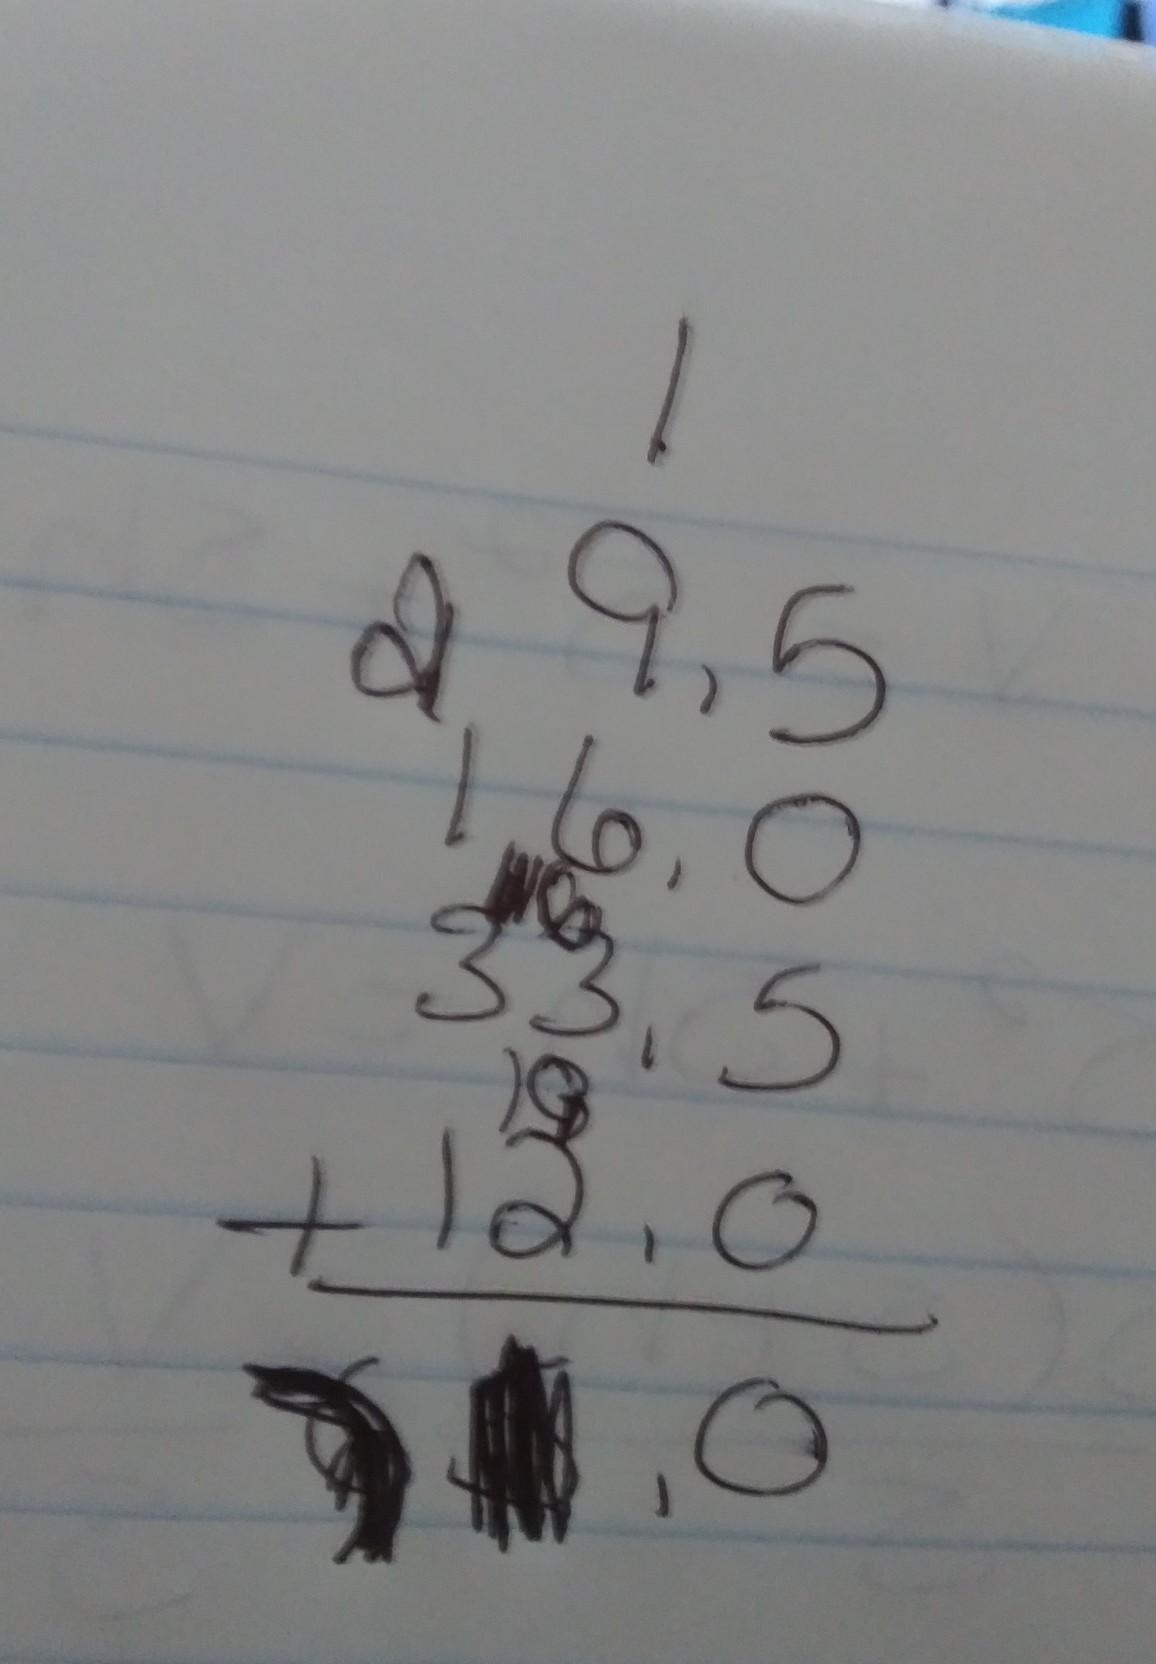 1
29,5
16,0
33,5
+12,0
,0